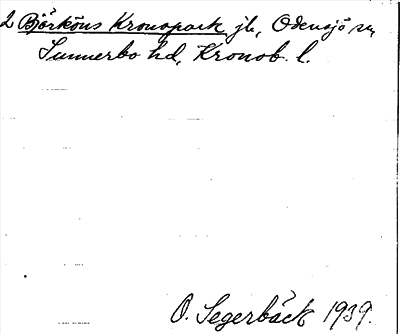 2 Björköns Kronopark jh, Odensjö sn,
Sunnerbo hd, Kronob. l.
O. Segerbäck 1939.